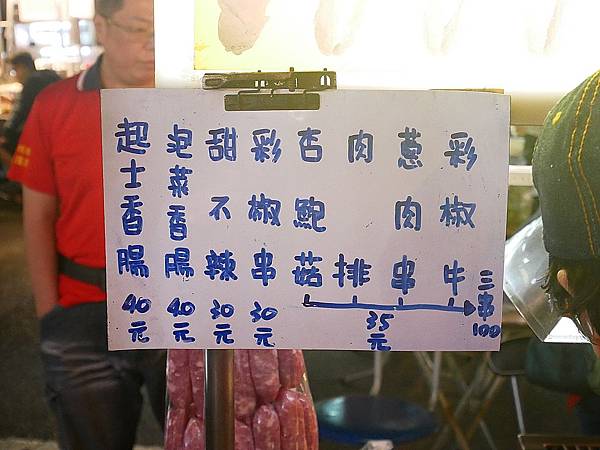 起士香腸40元
泡菜香腸40元
甜不辣30元
彩椒串30元
杏鮑菇
肉排
蔥肉串
彩椒牛
35元
三串100